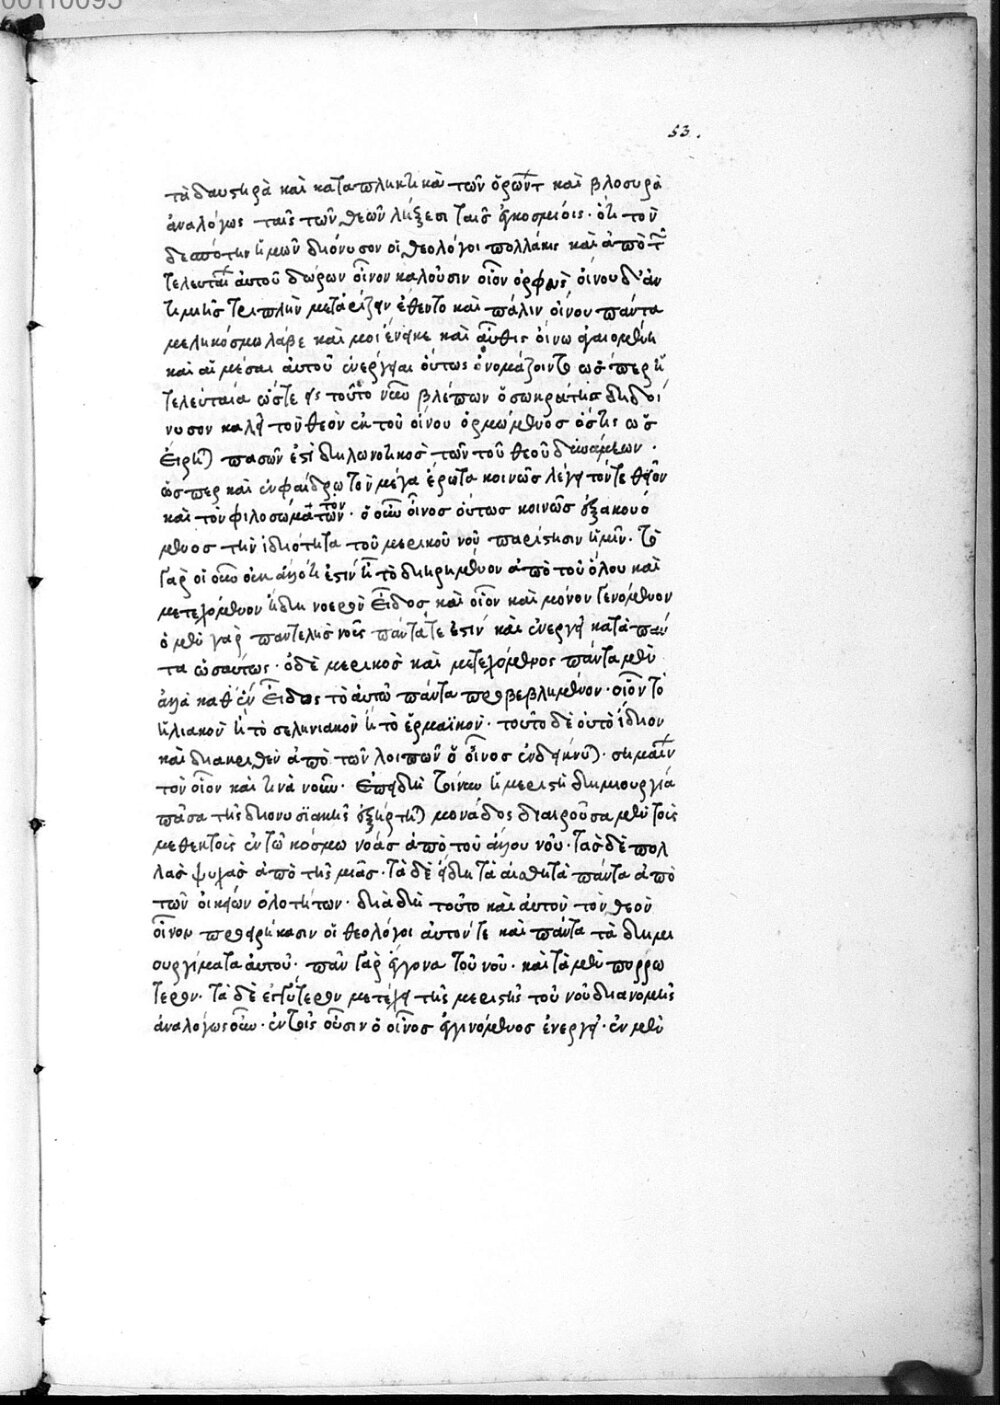 53.
τὰ δαυστηρὰ καὶ καταπληκτικὰ τῶν ὄρων καὶ βλοσυρὰ
ἀναλόγως ταῖς τῶν θεῶν λήξεσι ταῖς ἐγκοσμίοις· ὅτι τὸν
δεσπότην ἡμῶν διόνυσον οἱ θεολόγοι πολλάκις καὶ ἀπὸ τῶν
τελευταίων αὐτοῦ δώρων οἶνον καλοῦσιν οἷον ὀρφεὺς οἴνου δ' ἀν
τιμῆς τριπλὴν μετάριζαν ἔθεντο καὶ πάλιν οἴνου πάντα
μέλη κόσμω λάβε καὶ μοι ἔνεικε καὶ αὖθις οἴνω ἀγαιομένη
καὶ αἱ μέσαι αὐτοῦ ἐνέργειαι οὕτως ὀνομάζοιντο ὥσπερ ἡ
τελευταία ὥστε εἰς τοῦτο νῦν βλέπων ὁ σωκράτης διδοί
νυσον καλεῖ τὸν θεὸν ἐκ τοῦ οἴνου ὁρμώμενος ὅστις ὡς
εἴρηται πασῶν ἐστὶ δηλωνοτικὸς τῶν τοῦ θεοῦ δυνάμεων·
ὥσπερ καὶ ἐν φαίδρω τὸν μέγα ἔρωτα κοινῶς λέγει τόν τε θεῖον
καὶ τὸν φιλοσώματον· ὁ οὖν οἶνος οὕτως κοινῶς ἐξακουό
μενος τὴν ἰδιότητα τοῦ μερικοῦ νοῦ παρίστησιν ἡμῖν· τὸ
γὰρ οἱ οὖν οὐκ ἄλλό τι ἐστὶν ἢ τὸ διῃρημένον ἀπὸ τοῦ ὅλου καὶ
μετεχόμενον ἤδη νοερὸν εἶδος καὶ οἷον καὶ μόνον γενόμενον
ὁ μὲν γὰρ παντελὴς νοῦς πάντά τε ἐστὶν καὶ ἐνεργεῖ κατὰ πάν
τα ὡσαύτως· ὁ δὲ μερικὸς καὶ μετεχόμενος πάντα μὲν
ἀλλὰ καθ' ἓν εἶδος τὸ αὐτῶ πάντα προβεβλημένον· οἷον τὸ
ἡλιακὸν ἢ τὸ σεληνιακὸν ἢ τὸ ἑρμαϊκὸν· τοῦτο δὲ οὐτὸ ἴδιον
καὶ διακριθὲν ἀπὸ τῶν λοιπῶν ὁ οἶνος ἐνδείκνυται· σημαίνων
τὸν οἷον καὶ τινὰ νοῦν· ἐπειδὴ τοίνυν ἡ μεριστὴ δημιουργία
πᾶσα τῆς διονυσιακῆς ἐξήρτηται μονάδος διαιροῦσα μὲν τοὺς
μεθεκτοὺς ἐν τῶ κόσμω νόας ἀπὸ τοῦ ὅλου νοῦ· τὰς δὲ πολ
λὰς ψυχὰς ἀπὸ τῆς μιᾶς· τὰ δὲ εἴδη τὰ αἰσθητὰ πάντα ἀπὸ
τῶν οἰκείων ὁλοτήτων· διὰ δὴ τοῦτο καὶ αὐτὸν τὸν θεὸν
οἶνον προσειρήκασιν οἱ θεολόγοι αὐτόν τε καὶ πάντα τὰ δημι
ουργήματα αὐτοῦ· πᾶν γὰρ ἔγγονα τοῦ νοῦ· καὶ τὰ μὲν πορρω
τέρων· τὰ δὲ ἐγγυτέρων μετέχει τῆς μεριστῆς τοῦ νοῦ διανομῆς
ἀναλόγως οὖν· ἐν τοῖς οὖσιν ὁ οἶνος ἐγγινόμενος ἐνεργεῖ· ἐν μὲν